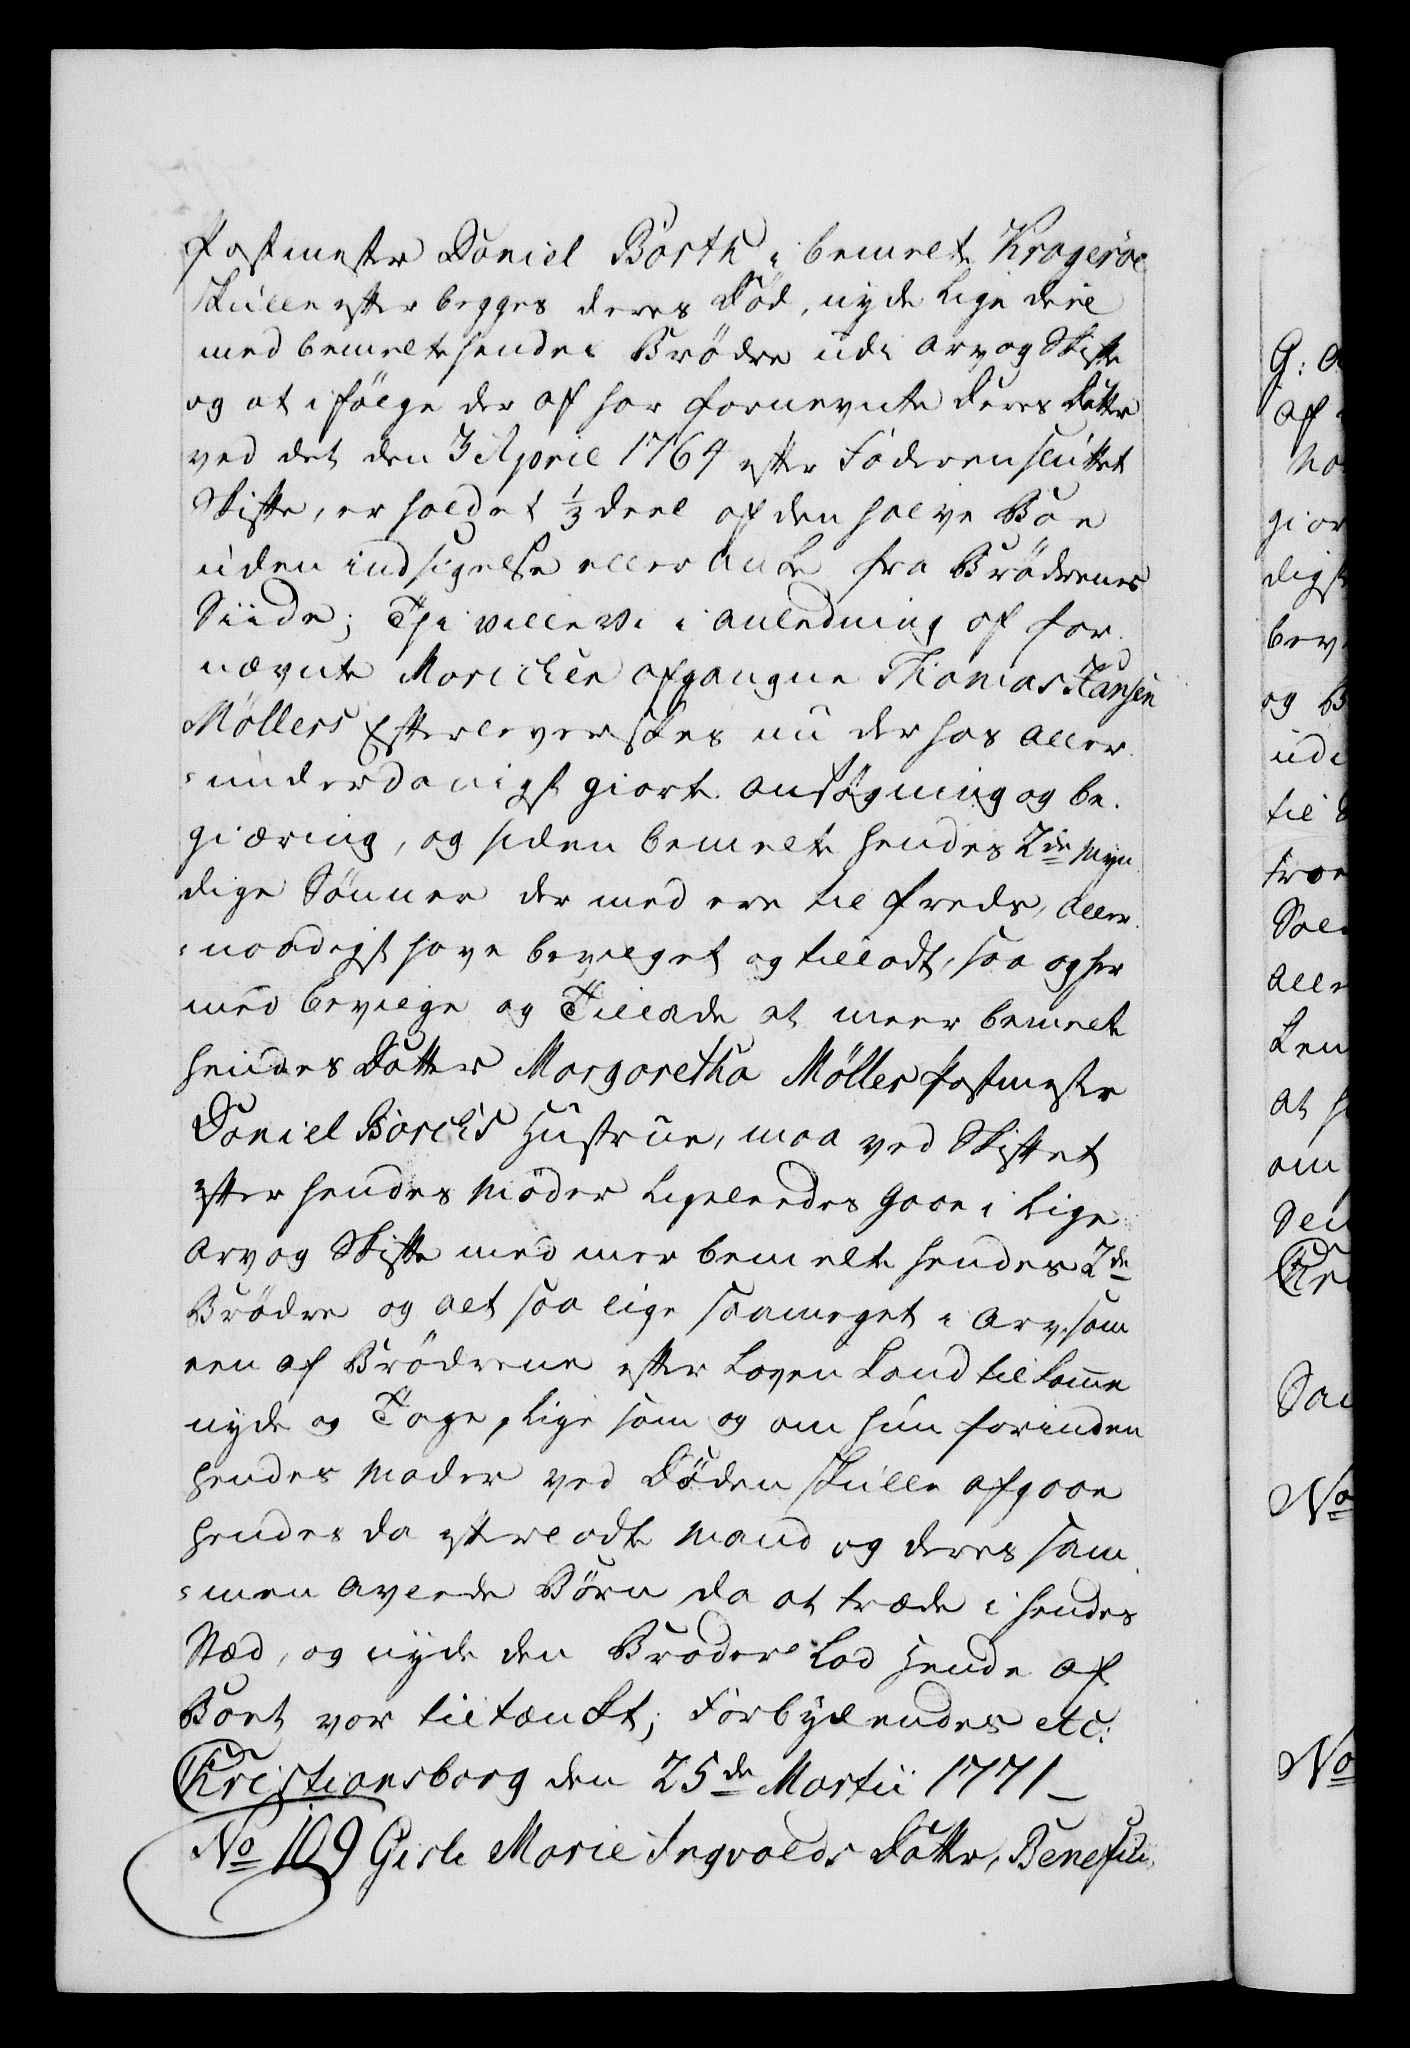 Postmester Daniel Borth i bemelte Krogerøe
skulle efter begges deres Död, nyde lige deel
med bemelte hendes Brödre udi Arv og Skifte
og at i fölge der af har fornevnte deres Datter
ved det den 3 April 1764 efter Faderen sluttet
Skifte, er holdet 1/3 deel af den halve Boe
uden indsigelse eller Anke fra Brödrenes
Siide; Thi ville Vi i Anledning af for
nævnte Marichen afgangne Thomas Hansen
Möllers Efterleverskes nu derhos aller
=underdanigst giorte Ansögning og be.
giæring, og siden bemelte hendes 2de Myn
dige Sönner der med ere til freds, Aller
=naadigst have bevilget og tilladt, saa og her
med bevilge og Tillade at meer bemelte
hendes Datter Margaretha Möller Postmester
Daniel Borchs Hustrue, maa ved Skiftet
efter hendes Moder ligeleedes gaae i lige
Arv og Skifte med meer bemelte hendes 2de
Brödre og alt saa lige saameget i Arv, som
een af Brödrene efter Loven kand tilkomme
nyde og Tage, lige som og om hun forinden
hendes Moder ved Döden skulle afgaae
hendes da efterladte Mand og deres sam
=men Avlede Börn da at træde i hendes
Stæd, og nyde den Broder Lod hende af
Boet var tiltænkt; Forbydendes etc:
Christiansborg den 25de Martii 1771
No 109 Gisle Marie Ingvolds Datter, Benefici
G: A
Af
giør
digst
bev
og B
udi
til
troe
Alle
Len
at
om
No
No